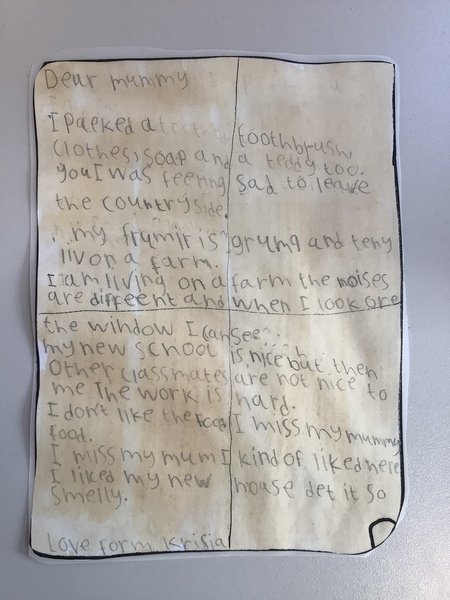 Dear mummy
I packed a toothbrush
clothes, soap and a teddy too.
you I was feering sad to leave
the countryside.
my frumir is grumg and teny
liv on a farm.
I am living on a farm the noises
are different and when I look ore
the window I can see
my new school is nice but then
Other classmates are not nice to
me The work is hard.
I don't like the food I miss my mummy
food.
I miss my mum I kind of liked here
I liked my new house det it so
smelly.
Love form Krisia